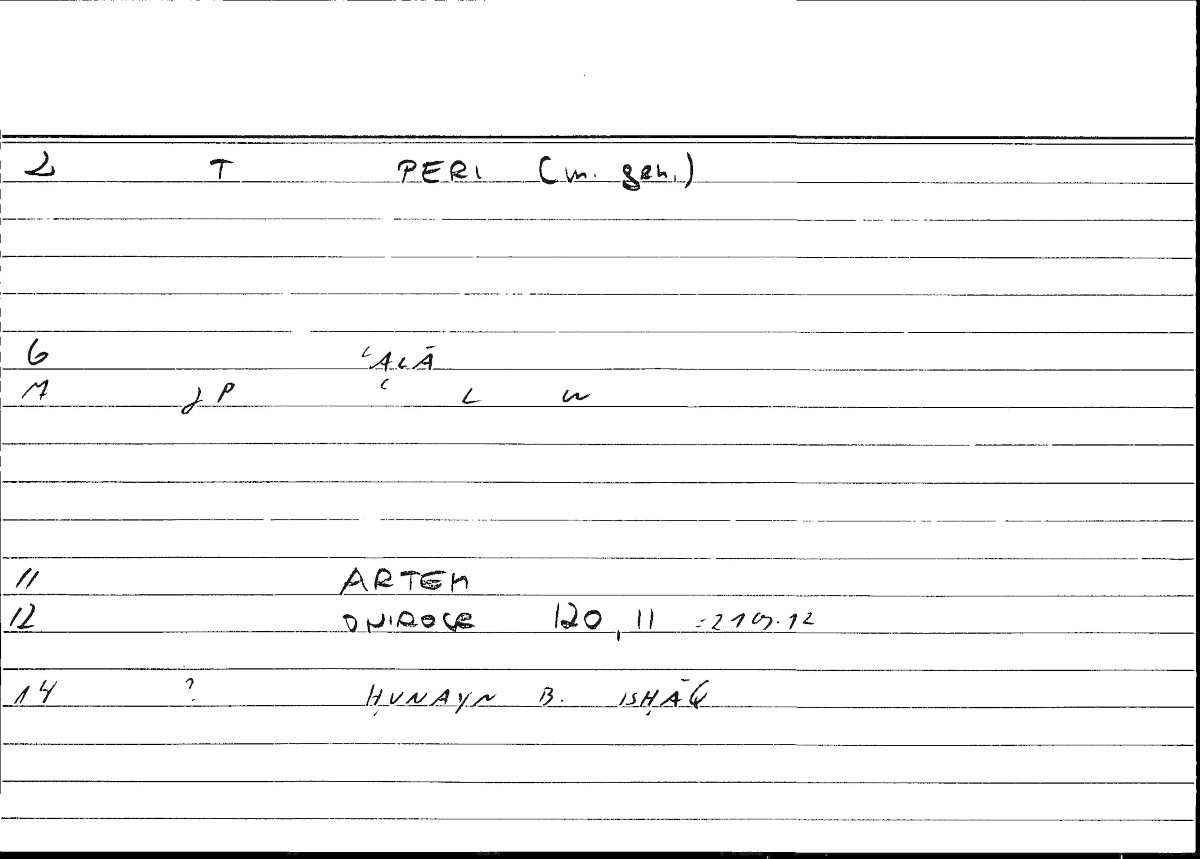 2 T PERI (m. gen.)
6 ʿALĀ
7 JP ʿ L W
11 ARTEM
12 ONIROCR 120, 11 = 219,12
14 ? ḤUNAYN B. ISḤĀQ